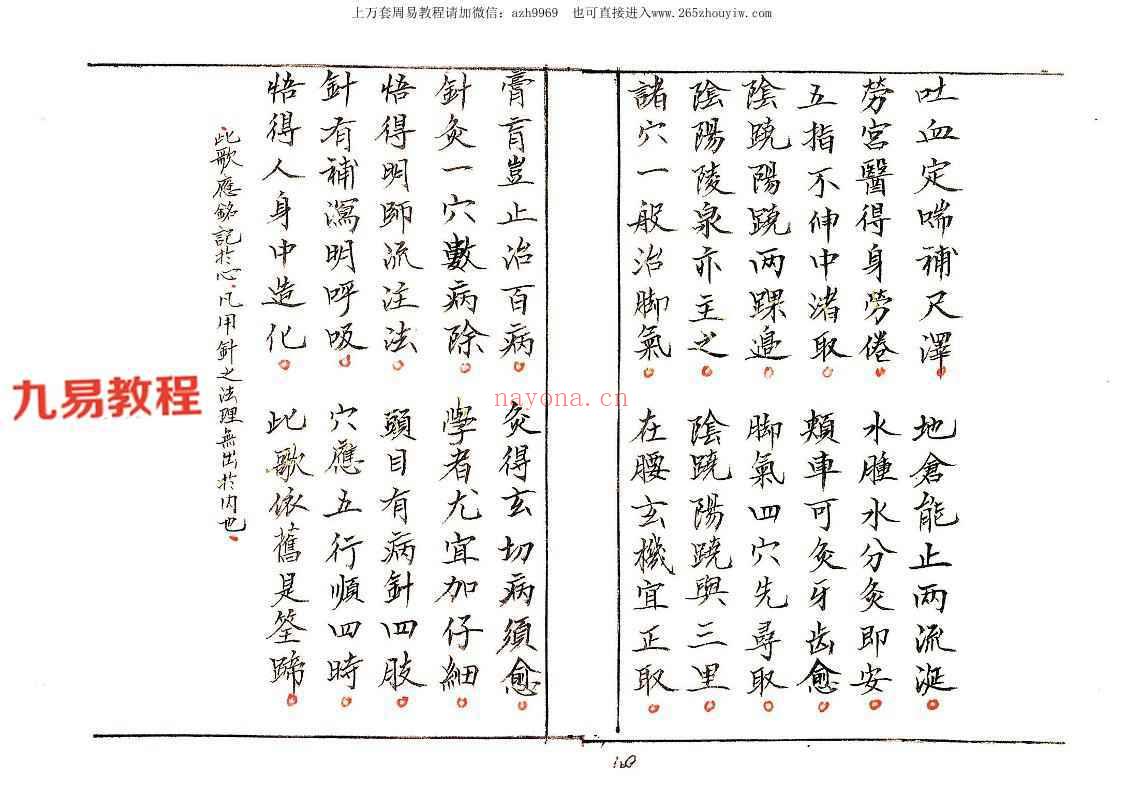 上万套周易教程请加微信：azh9969　也可直接进入www.265zhouyiw.com
吐血定喘補尺澤　地倉能止两流涎
勞宮醫得身勞倦　水腫水分灸即安
五指不伸中渚取　頰車可灸牙齿愈
陰蹺陽蹺两踝邉　脚氣四穴先尋取
陰陽陵泉亦主之　陰蹺陽蹺與三里
諸穴一般治脚氣　在腰玄機宜正取
膏肓豈止治百病　灸得玄切病須愈
針灸一穴數病除　學者尤宜加仔細
悟得明師流注法　頭目有病針四肢
針有補瀉明呼吸　穴應五行順四時
悟得人身中造化　此歌依舊是筌蹄
此歌應銘記於心、凡用針之法理無出於内也、
九易教程
nayona.cn